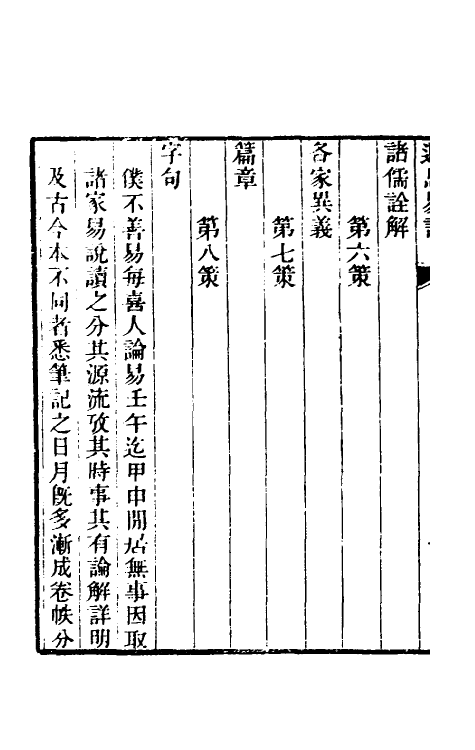 諸儒詮解
第六策
各家異義
第七策
篇章
第八策
字句
僕不善易每喜人論易壬午迄甲申閒居無事因取
諸家易說讀之分其源流攷其時事其有論解詳明
及古今本不同者悉筆記之日月旣多漸成卷帙分